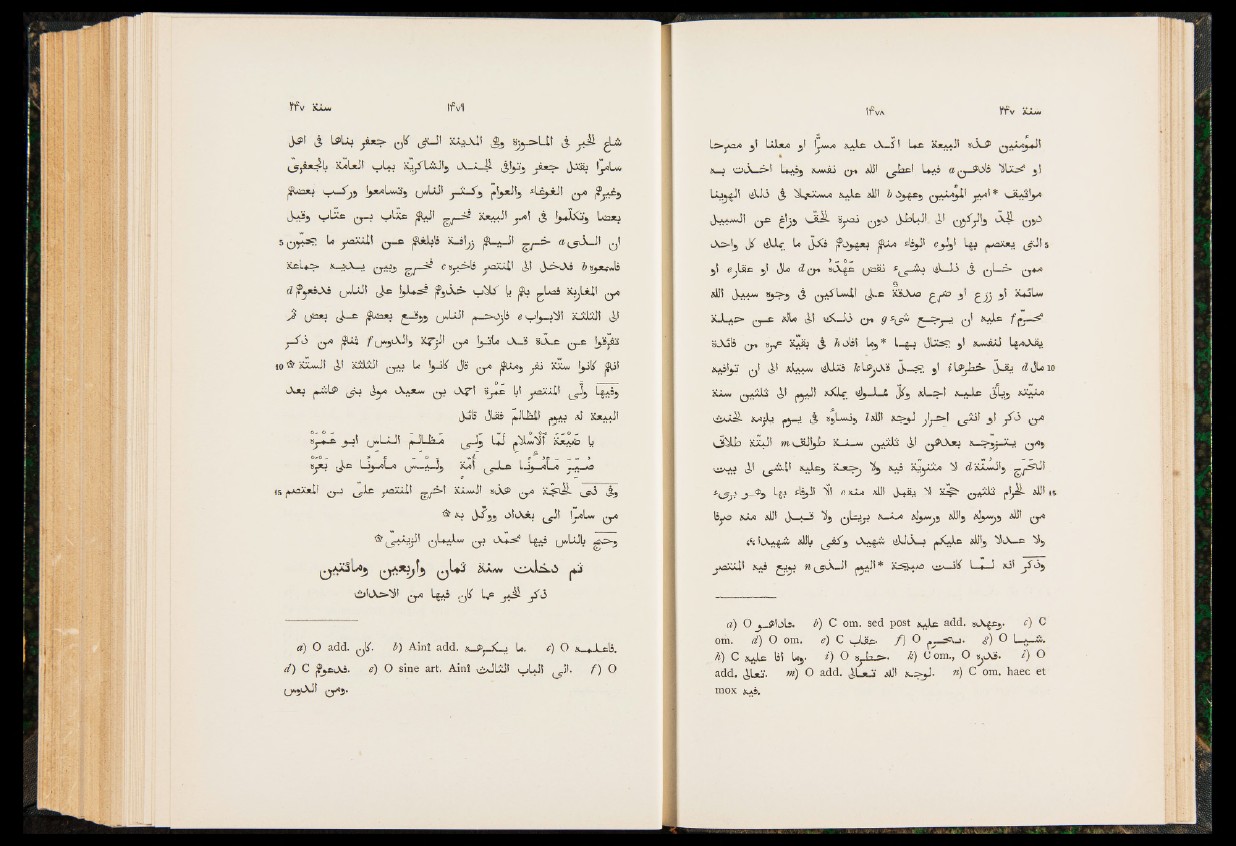 سنة ٢٤٧ ١٤٧٨
المؤمنين هذه البيعة عما اكّد عليه مسرًّا او معلنا او مصرحا
او محتالا فادّهن a فيما اعطى الله من نفسه وفيما اخذت به
مواثيق *امير المؤمنين وعهود b الله عليه مستعملا فى ذلك الهوينا
دون الجدّ والركون الى الباطل دون نصرة الحقّ وزاغ عن السبيل
5 التى يعتصم بها اولو c الوفاء منهم بعهودهم فكلّ ما يملك كل واحد
ممن خان فى ذلك بشىء نقض عَهْدَه من d مال او عقار e او
سائمة او زرع او ضرع صدقةٌ على المساكين فى وجوه سبيل الله
محرّم f عليه ان يرجع شىء g من ذلك الى ماله عن حيلة
يقدّمها لنفسه او يحتال بها *وما افاد h فى بقيّة عمره من فائدة
10 مال d يقلّ خطرها i او يجلّ قدرها k فتلك سبيله الى ان توافيه
منيّته ويأتى عليه اجله وكلّ مملوك يملكه اليوم الى ثلثين سنة
من ذكر او انثى احرار لوجه الله l ونساؤه فى يوم يلزمه الحنث
ومن يتزوّجه بعدهن الى ثلثين سنة طوالق m البتّة طلاق
الحَرَج والسُنّة d لا مثنويّة فيه ولا رجعة وعليه المشى الى بيت
15 الله الحرام ثلثين حجّة لا يقبل الله منه n الّا الوفاء بها وهو برىء
من الله ورسوله والله ورسوله منه بريئان ولا قبل الله منه صرفا
ولا عدلا والله عليكم بذلك شهيد وكفى بالله شهيدا ۞
وذكر انه لمّا كانت صبيحة *اليوم الذى n بويع فيه المنتصر
a) O فاداهو. b) C om. sed post عليه add. وعهده. c) C
om. d) O om. e) C عقاب. f) O يحرم. g) O شيا.
h) C وما افا عليه. i) O خطره. k) C om., O قدره. l) O
add. تعالى. m) O add. لوجه الله تعالى. n) C om. haec et
mox فيه.
١٤٧٩ سنة ٢٤٧
شاع الخبر فى الماحوزة وهى المدينة التى كان جعفر بناها فى اهل
سامرّا بقتل جعفر وتوافى الجند والشاكريّة بباب العامّة بالجعفرىّ
وغيرهم من الغوغاء والعوامّ وكثر الناس وتسامعوا وركب بعضهم
بعضا وتكلّموا فى امر البيعة فخرج اليهم عتّاب بن عتّاب وقيل
5 ان الذى a خرج اليهم زرافة فابلغهم عن المنتصر ما يحبّون
فاسمعوه b فدخل الى المنتصر فاخبره c فخرج وبين يديه جماعة
من المغاربة فصاح بهم يا كلاب خذوهم فحملوا على الناس فدفعوهم d
الى الثلثة الابواب e فازدحم الناس ووقع بعضهم على بعض ثم
تفرّقوا عن عدّة قد ماتوا من الزحمة والدوس f فمنهم من ذكر
10 انهم كانوا ستّة نفر ومنهم من قال كانوا ما بين الثلثة الى الستّة ۞
وفيها ولّى المنتصر ابا عَمْرة احمد بن سعيد مولى بنى هاشم بعد
البيعة له بيوم المظالمَ فقال قائل
يا ضَيْعَةَ الاسْلامِ لَمّا وَلِى مَظالِمَ الناسِ ابو عَمْرَهْ
صُيِّرَ مَأْمونًا على أُمّةٍ ولَيْسَ مَأْمونًا على بَعْرَهْ
15 وفى ذى الحجّة من هذه السنة اخرج المنتصر علىّ بن المعتصم
من سامرّا الى بغداد ووكّل به ۞
وحجّ بالناس فيها محمّد بن سليمان الزينبىّ ۞
ثم دخلت سنة ثمان واربعين ومائتين
ذكر الخبر عما كان فيها من الاحداث
a) O add. كان. b) Ainî add. ما يكرهه. c) O فاعلمه.
d) C فدعوهم. e) O sine art. Ainî الى الباب الثالث. f) O
ومن الدوس.